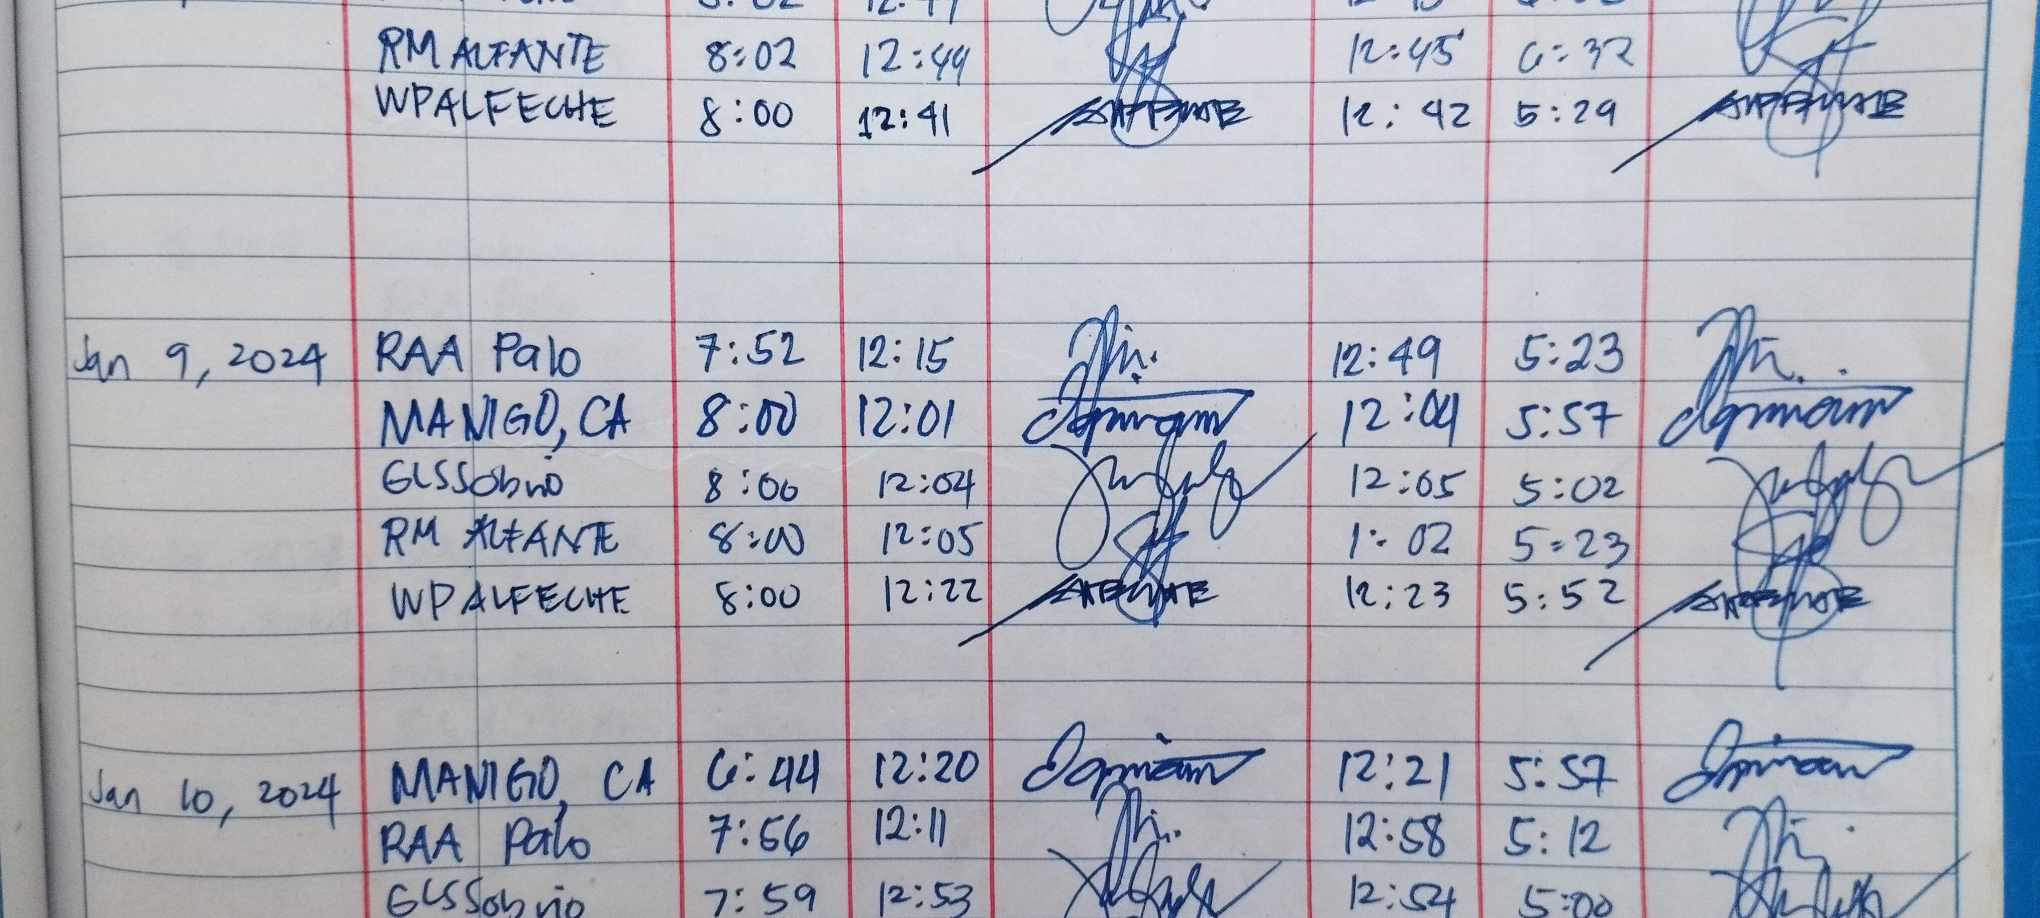 RM ALFANTE 8:02 12:44 12:45 6:32
WPALFECHE 8:00 12:41 12:42 5:29
Jan 9, 2024 RAA Palo 7:52 12:15 12:49 5:23
MANIGO, CA 8:00 12:01 12:04 5:57
GLSSobrio 8:00 12:04 12:05 5:02
RM ALFANTE 8:00 12:05 1:02 5:23
WPALFECHE 8:00 12:22 12:23 5:52
Jan 10, 2024 MANIGO, CA 6:44 12:20 12:21 5:57
RAA Palo 7:56 12:11 12:58 5:12
GLSSobrio 7:59 12:53 12:54 5:00